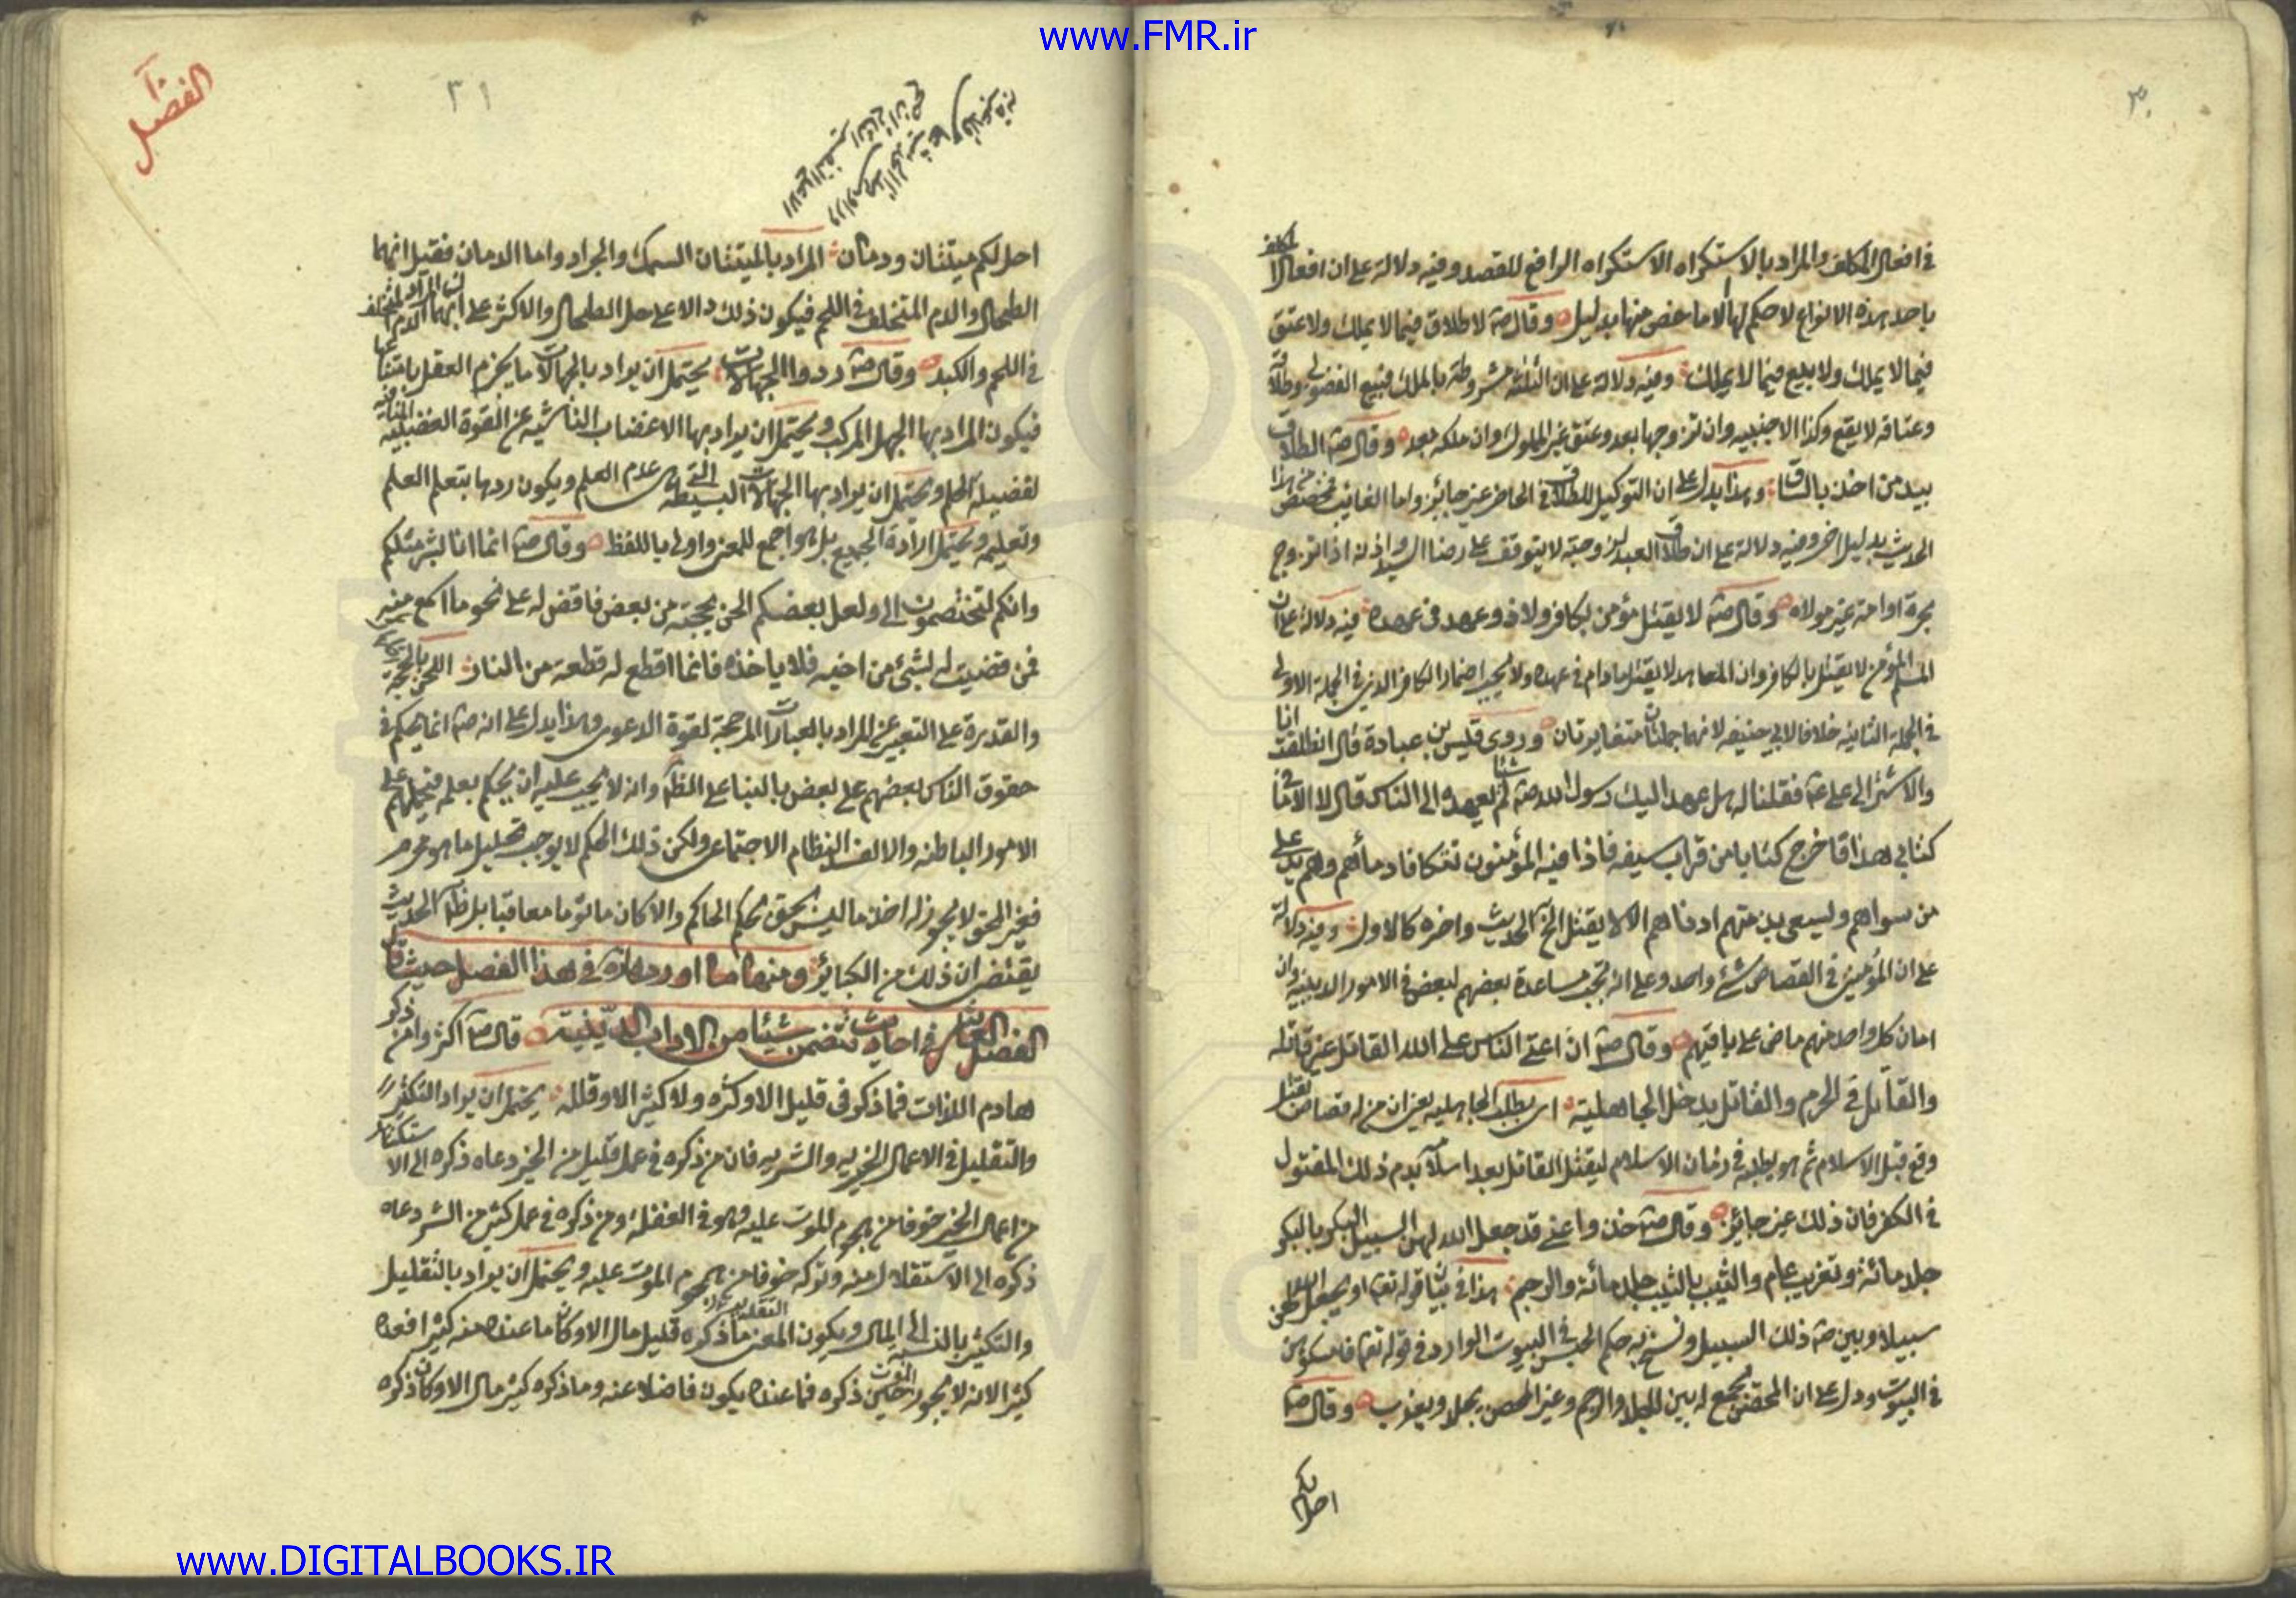 www.FMR.ir
٣٠
في افعال المكلف والمراد بالاستكراه الاستكراه الرافع للقصد وفيه دلالة على ان افعال المكلف
باحد هذه الانواع لا حكم لها الا ما خص منها بدليل وقال صم لا طلاق فيما لا يملك ولا عتق
فيما لا يملك ولا بيع فيما لا يملك وفيه دلالة على ان الثلثة مشروطة بالملك فبيع الفضولي وطلاقه
وعتاقه لا يقع وكذا الاجنبيه وان تزوجها بعد وعتق غير المملوك وان ملكه بعد وقال صم الطلاق
بيد من اخذ بالساق وهذا يدل على ان التوكيل للطلاق في الحاضر غير جائز واما الغائب فمخصص من هذا
الحديث بدليل اخر وفيه دلالة على ان طلاق العبد لزوجته لا يتوقف على رضا السيد واذنه اذا تزوج
بحرة او امة غير مولاه وقال صم لا يقتل مؤمن بكافر ولا ذو عهد في عهده فيه دلالة على ان
المسلم المؤمن لا يقتل بالكافر وان المعاهد لا يقتل مادام في عهده ولا يجب اضمار الكافر الذي في الجملة الاولى
في الجملة الثانية خلافا لابي حنيفه لانهما جملتان متغايرتان وروى قيس بن عبادة قال انطلقت انا
والاشتر الى على عم فقلنا له هل عهد اليك رسول الله صم شيئا لم يعهده الى الناس قال لا الا ما في
كتابي هذا فاخرج كتابا من قراب سيفه فاذا فيه المؤمنون تتكافا دمائهم وهم يد على
من سواهم ويسعى بذمتهم ادناهم الا لا يقتل الخ الحديث واخره كالاول وفيه دلالة
على ان المؤمنين في القصاص شئ واحد وعلى انه تجب مساعدة بعضهم لبعض في الامور الدينيه وان
امان كل واحد منهم ماض على باقيهم وقال صم ان اعتى الناس على الله القاتل غير قاتله
والقاتل في الحرم والقاتل بدخل الجاهلية اى بطلب الجاهليه يعني ان من له قصاص بقتل
وقع قبل الاسلام ثم هو يطلبه في زمان الاسلام ليقتل القاتل بعد اسلامه بدم ذلك المقتول
في الكفر فان ذلك غير جائز وقال صم خذوا عني قد جعل الله لهن السبيل البكر بالبكر
جلد مائة وتغريب عام والثيب بالثيب جلد مائة والرجم هذا في بيان قوله تعم او يجعل الله لهن
سبيلا وبين صم ذلك السبيل ونسخ به حكم الحبس في البيوت الوارد في قوله تعم فامسكوهن
في البيوت ودل على ان المحصن يجمع له بين الجلد والرجم وغير المحصن يجلد ويغرب وقال صم
احل لكم
٣١
احل لكم ميتتان ودمان المراد بالميتتان السمك والجراد واما الدمان فقيل انهما
الطحال والدم المتخلف في اللحم فيكون ذلك دالا على حل الطحال والاكثر على ان المراد بهما الدم المتخلف
في اللحم والكبد وقال صم ردوا الجهالات يحتمل ان يراد بالجهالات ما يجزم العقل بامتناعها
فيكون المراد بها الجهل المركب ويحتمل ان يراد بها الاعضاب الناشية عن القوة الغضبية المنافية
لفضيلة الحلم ويحتمل ان يراد بها الجهالات البسيطة التي هى عدم العلم ويكون ردها بتعلم العلم
وتعليمه ويحتمل ارادة الجميع بل هو اجمع للمعنى واولى باللفظ وقال صم انما انا بشر مثلكم
وانكم لتختصمون الى ولعل بعضكم الحن بحجته من بعض فاقضى له على نحو ما اسمع منه
فمن قضيت له بشئ من اخيه فلا ياخذه فانما اقطع له قطعة من النار اللحن بالحجة
والقدرة على التعبير عن المراد بالعبارات المرجحة لقوة الدعوى وهذا يدل على انه صم انما يحكم في
حقوق الناس بعضهم على بعض بالبناء على الظاهر وانه لا يجب عليه ان يحكم بعلمه فيحملهم على
الامور الباطنه والا لفسد النظام الاجتماعى ولكن ذلك الحكم لا يوجب تحليل ما هو محرم
فغير المحق لا يجوز له اخذ ما ليس بحق بحكم الحاكم والا كان ماثوما معاقبا بل ظاهر الحديث
يقتضى ان ذلك من الكبائر ومنها ما اورده في هذا الفصل حديث قال
الفصل العاشر في احاديث تتضمن شيئا من الاداب الدينية قال صم اكثروا من ذكر
هادم اللذات فما ذكر في قليل الا وكثره ولا كثير الا وقلله يحتمل ان يراد التكثير
والتقليل في الاعمال الخيريه والشريه فان من ذكره في عمل قليل من الخير دعاه ذكره الى الاستكثار
من اعمال الخير خوفا من هجوم الموت عليه وهو في الغفلة ومن ذكره في عمل كثير من الشر دعاه
ذكره الى الاستقلال منه وتركه خوفا من هجوم الموت عليه ويحتمل ان يراد بالتقليل
والتكثير بالنسبة الى المال ويكون المعنى ما ذكره قليل مال الا وكان ما عنده منه كثيرا فعده
كثيرا لانه لا يجوز حين ذكره فما عنده يكون فاضلا عنه وما ذكره كثير مال الا وكان ذكره
www.DIGITALBOOKS.IR